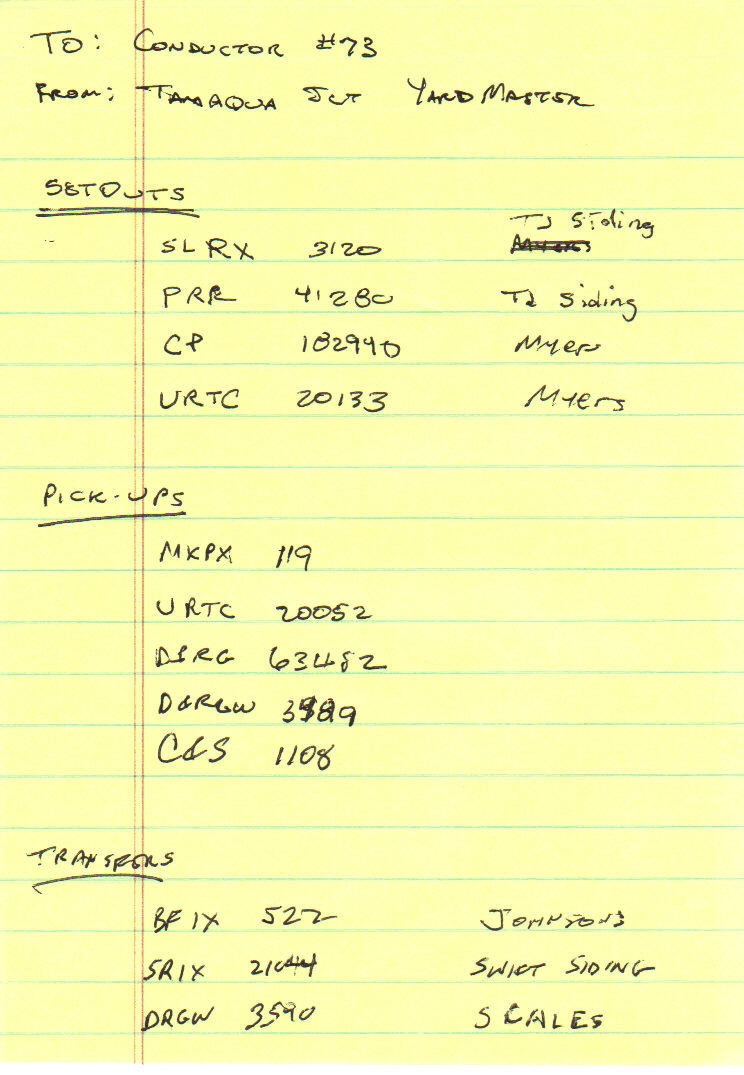 TO: CONDUCTOR #73
FROM: TAMAQUA JCT YARDMASTER
SETOUTS
SLRX 3120 TJ Siding
PRR 41280 TJ Siding
CP 182940 Myers
URTC 20133 Myers
PICK-UPS
MKPX 119
URTC 20052
D&RG 63482
D&RGW
C&S 1108
TRANSFERS
BFIX 522 JOHNSONS
SRIX 21044 SWIFT SIDING
DRGW 3590 SCALES